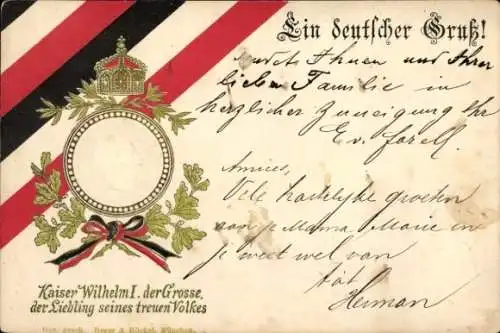 Ein deutscher Gruß!
sendet Ihnen und Ihrer
lieben Familie in
herzlicher Zuneigung Ihr
E. v. Forell.
Amice,
Vele hartelijke groeten
aan je Mama. Marie en
je weet wel van
tat
Herman
Kaiser Wilhelm I. der Grosse,
der Liebling seines treuen Volkes